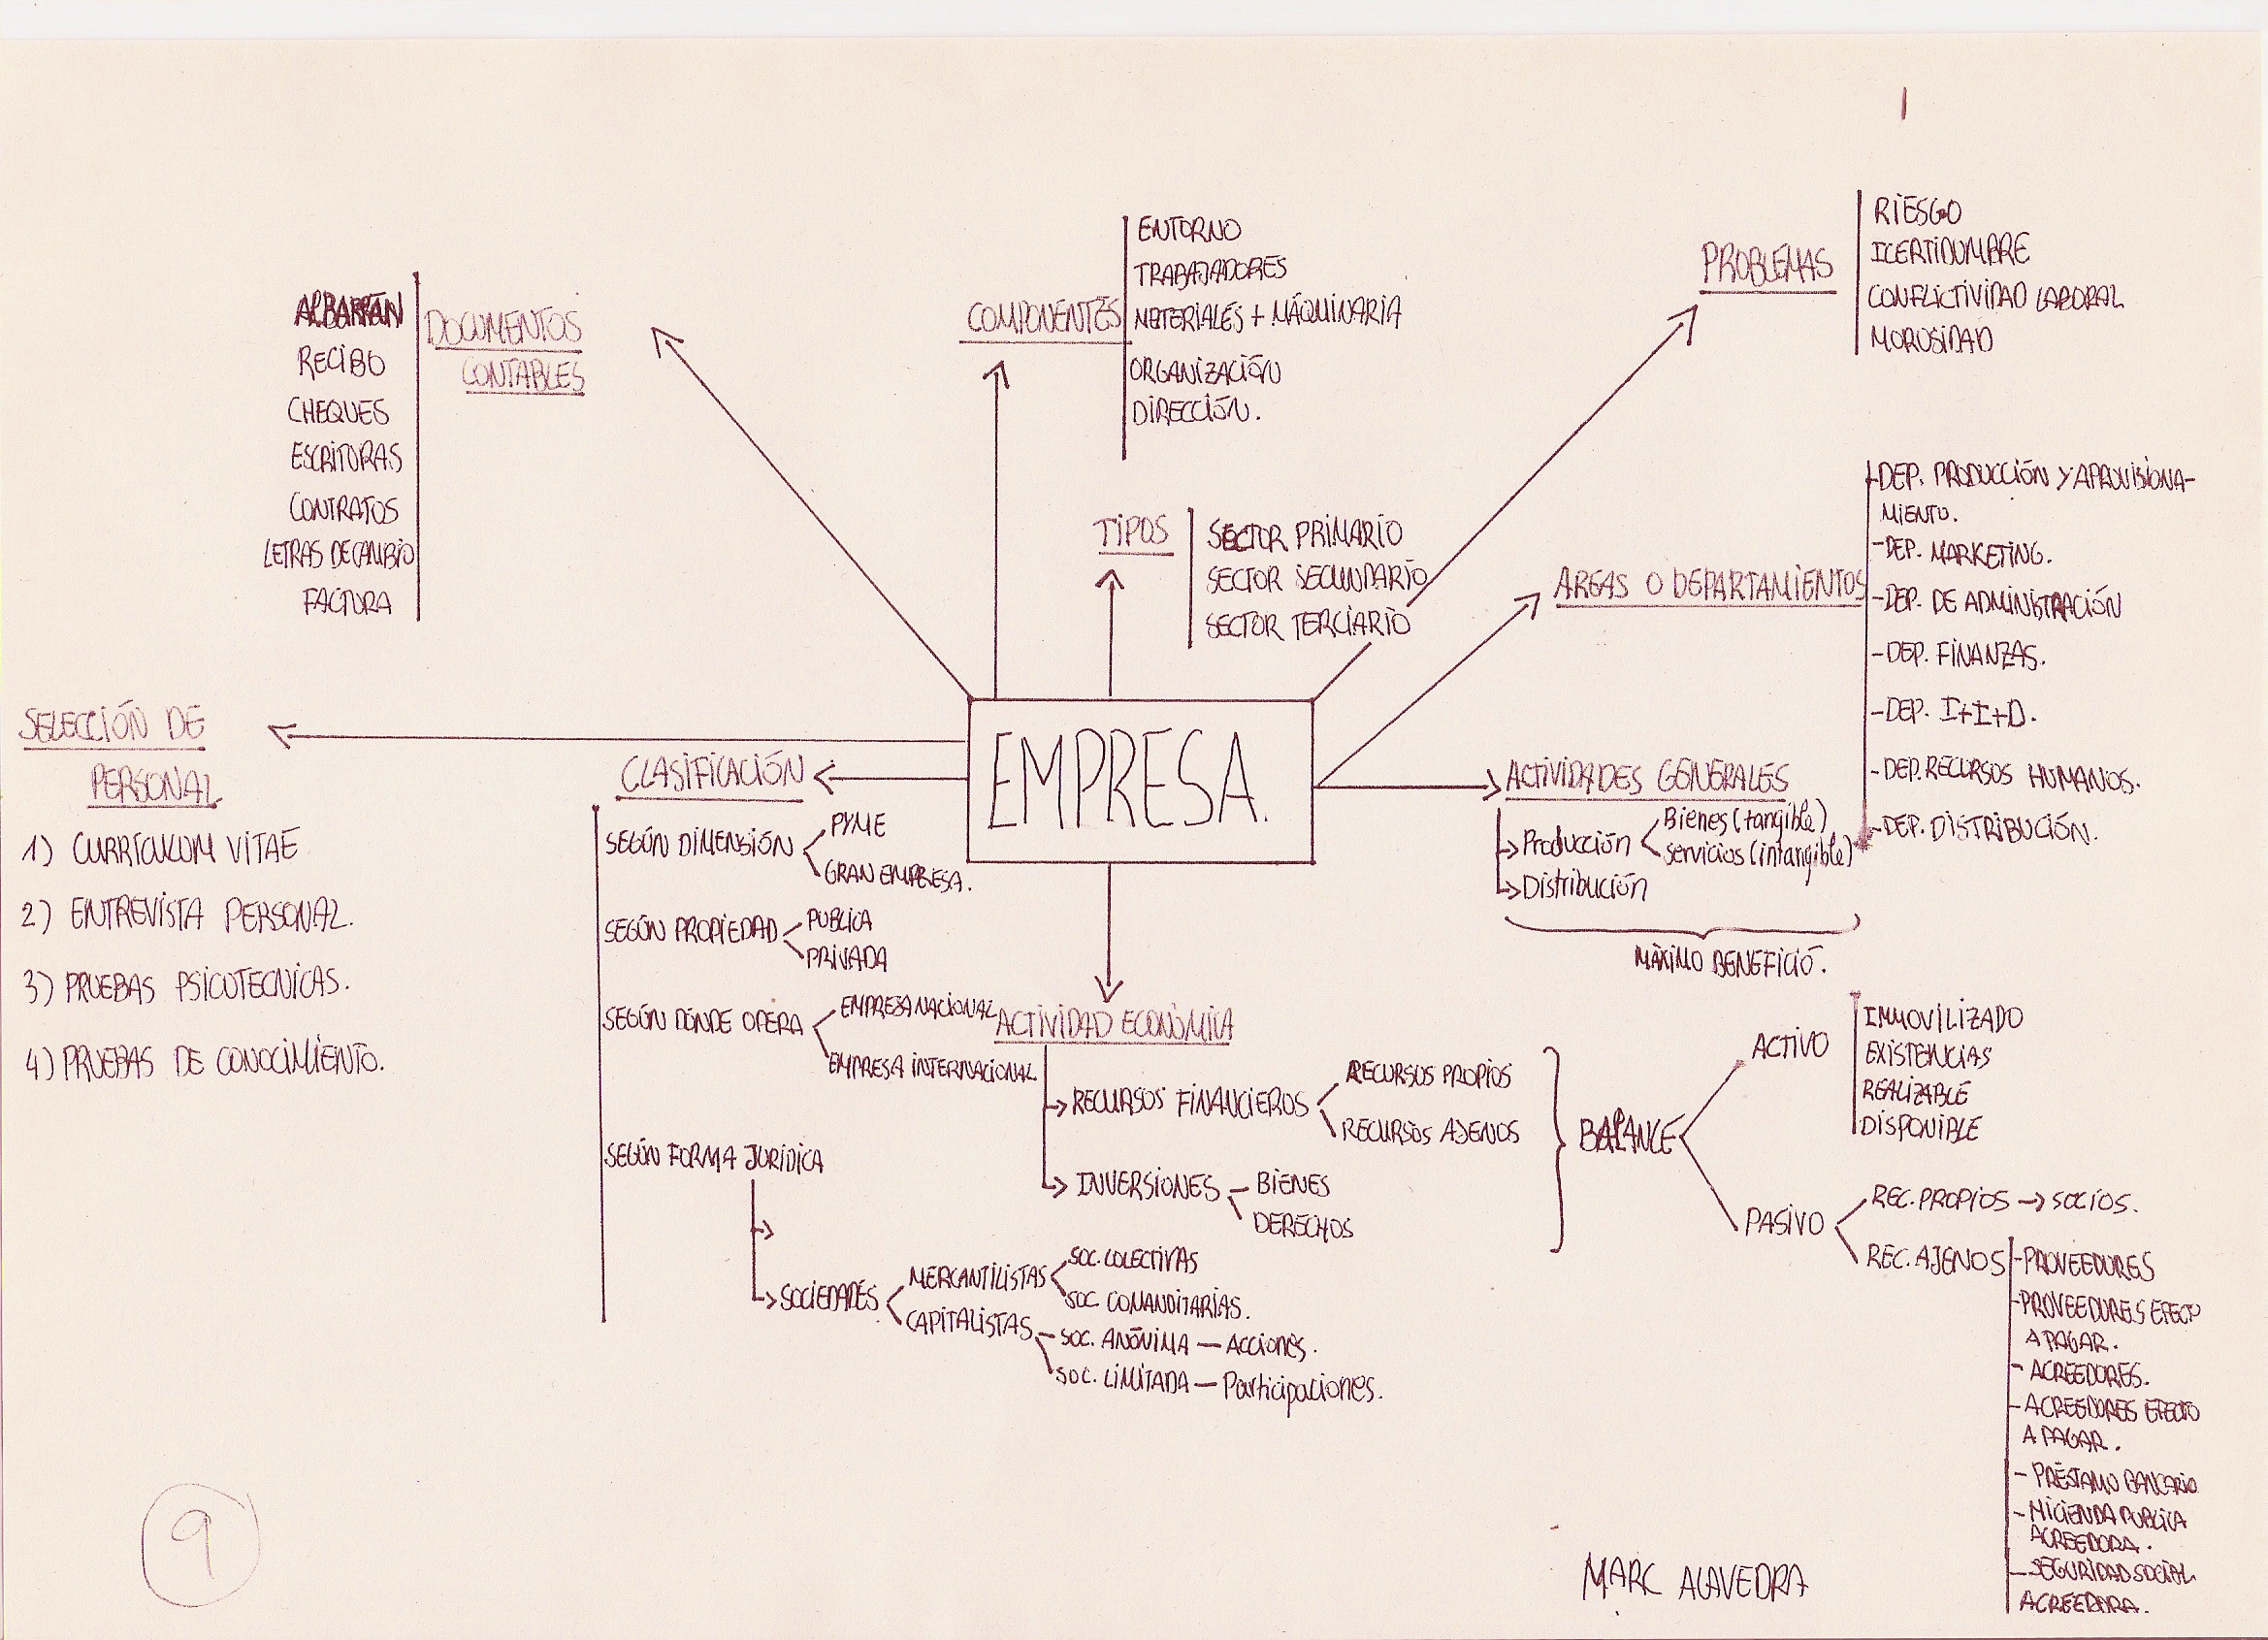 ALBARRÁN
RECIBO
CHEQUES
ESCRITURAS
CONTRATOS
LETRAS DE CAMBIO
FACTURA
DOCUMENTOS
CONTABLES
COMPONENTES
ENTORNO
TRABAJADORES
MATERIALES + MÁQUINARIA
ORGANIZACIÓN
DIRECCIÓN.
PROBLEMAS
RIESGO
ICERTIDUMBRE
CONFLICTIVIDAD LABORAL
MOROSIDAD
TIPOS
SECTOR PRIMARIO
SECTOR SECUNDARIO
SECTOR TERCIARIO
AREAS O DEPARTAMIENTOS
-DEP. PRODUCCIÓN Y APROVISIONA-
MIENTO.
-DEP. MARKETING.
-DEP. DE ADMINISTRACIÓN
-DEP. FINANZAS.
-DEP. I+I+D.
-DEP. RECURSOS HUMANOS.
-DEP. DISTRIBUCIÓN.
EMPRESA.
SELECCIÓN DE
PERSONAL
1) CURRÍCULUM VITAE
2) ENTREVISTA PERSONAL.
3) PRUEBAS PSICOTECNICAS.
4) PRUEBAS DE CONOCIMIENTO.
CLASIFICACIÓN
SEGÚN DIMENSIÓN
PYME
GRAN EMPRESA.
SEGÚN PROPIEDAD
PUBLICA
PRIVADA
SEGÚN DÓNDE OPERA
EMPRESA NACIONAL
EMPRESA INTERNACIONAL
SEGÚN FORMA JURÍDICA
SOCIEDADES
MERCANTILISTAS
SOC. COLECTIVAS
SOC. COMANDITARIAS.
CAPITALISTAS
SOC. ANÓNIMA — ACCIONES.
SOC. LIMITADA — Participaciones.
ACTIVIDADES GENERALES
Producción
Bienes (tangible)
servicios (intangible)
Distribución
MÀXIMO BENEFICIO.
ACTIVIDAD ECONÒMICA
RECURSOS FINANCIEROS
RECURSOS PROPIOS
RECURSOS AJENOS
INVERSIONES
BIENES
DERECHOS
BALANCE
ACTIVO
INMOVILIZADO
EXISTENCIAS
REALIZABLE
DISPONIBLE
PASIVO
REC. PROPIOS → SOCIOS.
REC. AJENOS
-PROVEEDORES
-PROVEEDORES EFECTO
A PAGAR.
- ACREEDORES.
- ACREEDORES EFECTO
A PAGAR.
- PRÉSTAMO BANCARIO
- HICIENDA PUBLICA
ACREEDORA.
- SEGURIDAD SOCIAL
ACREEDORA.
9
MARC ALAVEDRA